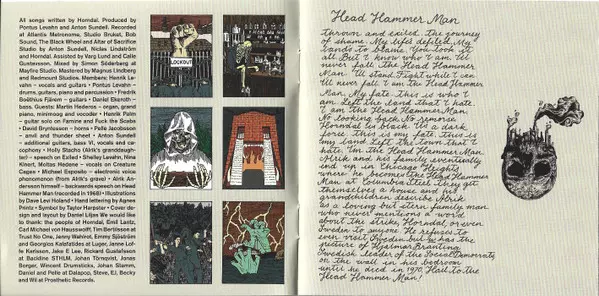 All songs written by Horndal. Produced by
Pontus Levahn and Anton Sundell. Recorded
at Atlantis Metronome, Studio Bruket, Bob
Sound, The Black Wheel and Altar of Sacrifice
Studio by Anton Sundell, Niclas Lindström
and Horndal. Assisted by Varg Lund and Calle
Gustavsson. Mixed by Simon Söderberg at
Mayfire Studio. Mastered by Magnus Lindberg
and Redmount Studios. Members: Henrik Le-
vahn – vocals and guitars • Pontus Levahn –
drums, guitars, piano and percussion • Fredrik
Boëthius Fjärem – guitars • Daniel Ekeroth –
bass. Guests: Martin Hederos – organ, grand
piano, minimoog and vocoder • Henrik Palm
– guitar solo on Famine and Fuck the Scabs
• David Brynlsson – horns • Pelle Jacobsson
– anvil and thunder sheet • Anton Sundell
– additional guitars, bass VI, vocals and ca-
cophony • Holly Stuchly (Alrik's granddaugh-
ter) – speech on Exiled • Shelley Levahn, Nina
Kinert, Moltas Hederoe – vocals on Creature
Capee • Michael Esposito – electronic voice
phenomenon (from Alrik's grave) • Alrik An-
dersson himself – backwards speech on Head
Hammer Man (recorded in 1968) • Illustrations
by Dave Levi Holand • Hand lettering by Agnes
Printz • Symbol by Taylor Harpster • Cover de-
sign and layout by Daniel Liljas We would like
to thank: the people of Horndal, Emil Lastz,
Carl Michael von Hausswolff, Tim Bertilsson at
Trust No One, Jenny Walhrot, Emmy Sjöström
and Georgios Kalafatides at Luger, Janne Lof-
ler Karlsson, Jake E Lee, Richard Gustafsson
at Bacidine STHLM, Johan Törnqvist, Jonas
Berger, Vincent Drumsticks, Johan Stamm,
Daniel and Pelle at Dalapop, Steve, EJ, Becky
and Will at Prosthetic Records.
LOCKOUT
Head Hammer Man
thrown and exiled, the journey
of shame. My life's defiled. My
hands to blame. You took it
all. But I know who I am. I'll
never fall. The Head Hammer
Man. I'll stand. Fight while I can
I'll never fall. I am the Head Hammer
Man. My fate, this is who I
am. Left the land that I hate.
I am the Head Hammer Man.
No looking back. No remorse.
Horndal in black. Is a dark
force. this is my fate, this is
my land. Left the town that I
hate. I'm the Head Hammer Man
Alrik and his family eventually
end up in Chicago Heights
where he becomes the Head Hammer
Man at Columbia Steel. They get
themselves a house and his
grandchildren describe Alrik
as a loving but stern family man
who never mentions a word
about the strike, Horndal, or even
Sweden to anyone. He refuses to
even visit Sweden but has the
picture of Hjalmar Branting
Swedish leader of the Social Democrats
on the wall in his bedroom
until he died in 1970. Hail to the
Head Hammer Man!